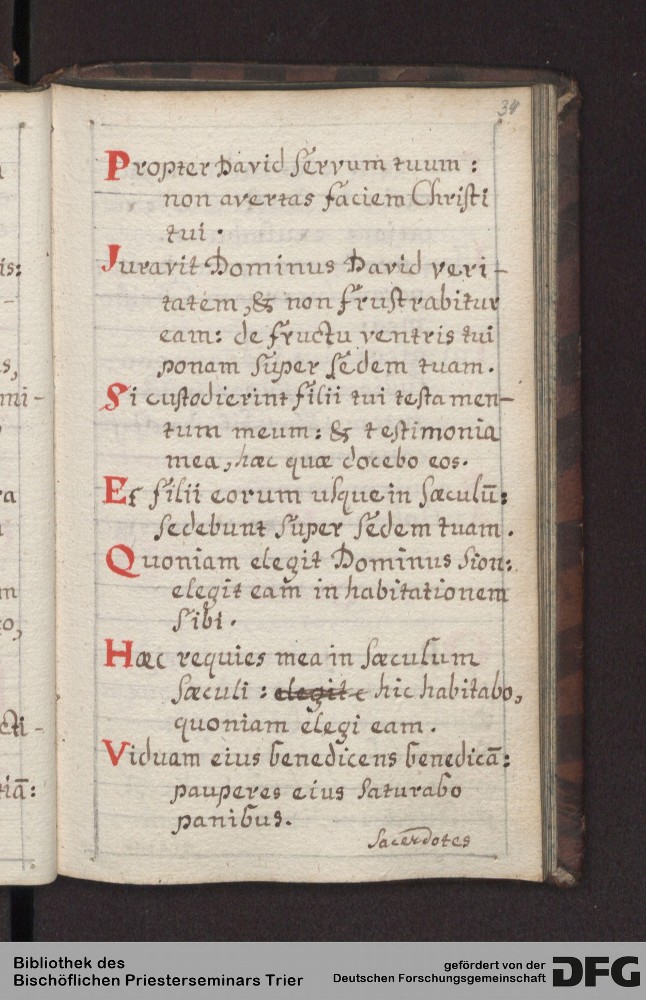 34
Propter David servum tuum :
non avertas faciem Christi
tui .
Juravit Dominus David veri-
tatem, & non frustrabitur
eam: de fructu ventris tui
ponam super sedem tuam.
Si custodierint filii tui testamen-
tum meum: & testimonia
mea, hæc quæ docebo eos.
Et filii eorum usque in sæculū:
sedebunt super sedem tuam.
Quoniam elegit Dominus Sion:
elegit eam in habitationem
sibi.
Hæc requies mea in sæculum
sæculi : elegit e hic habitabo,
quoniam elegi eam.
Viduam eius benedicens benedicā:
pauperes eius saturabo
panibus.
Sacerdotes
is:
-
s,
mi-
ra
m
to,
cti-
tiā:
Bibliothek des
Bischöflichen Priesterseminars Trier
gefördert von der
Deutschen Forschungsgemeinschaft
DFG